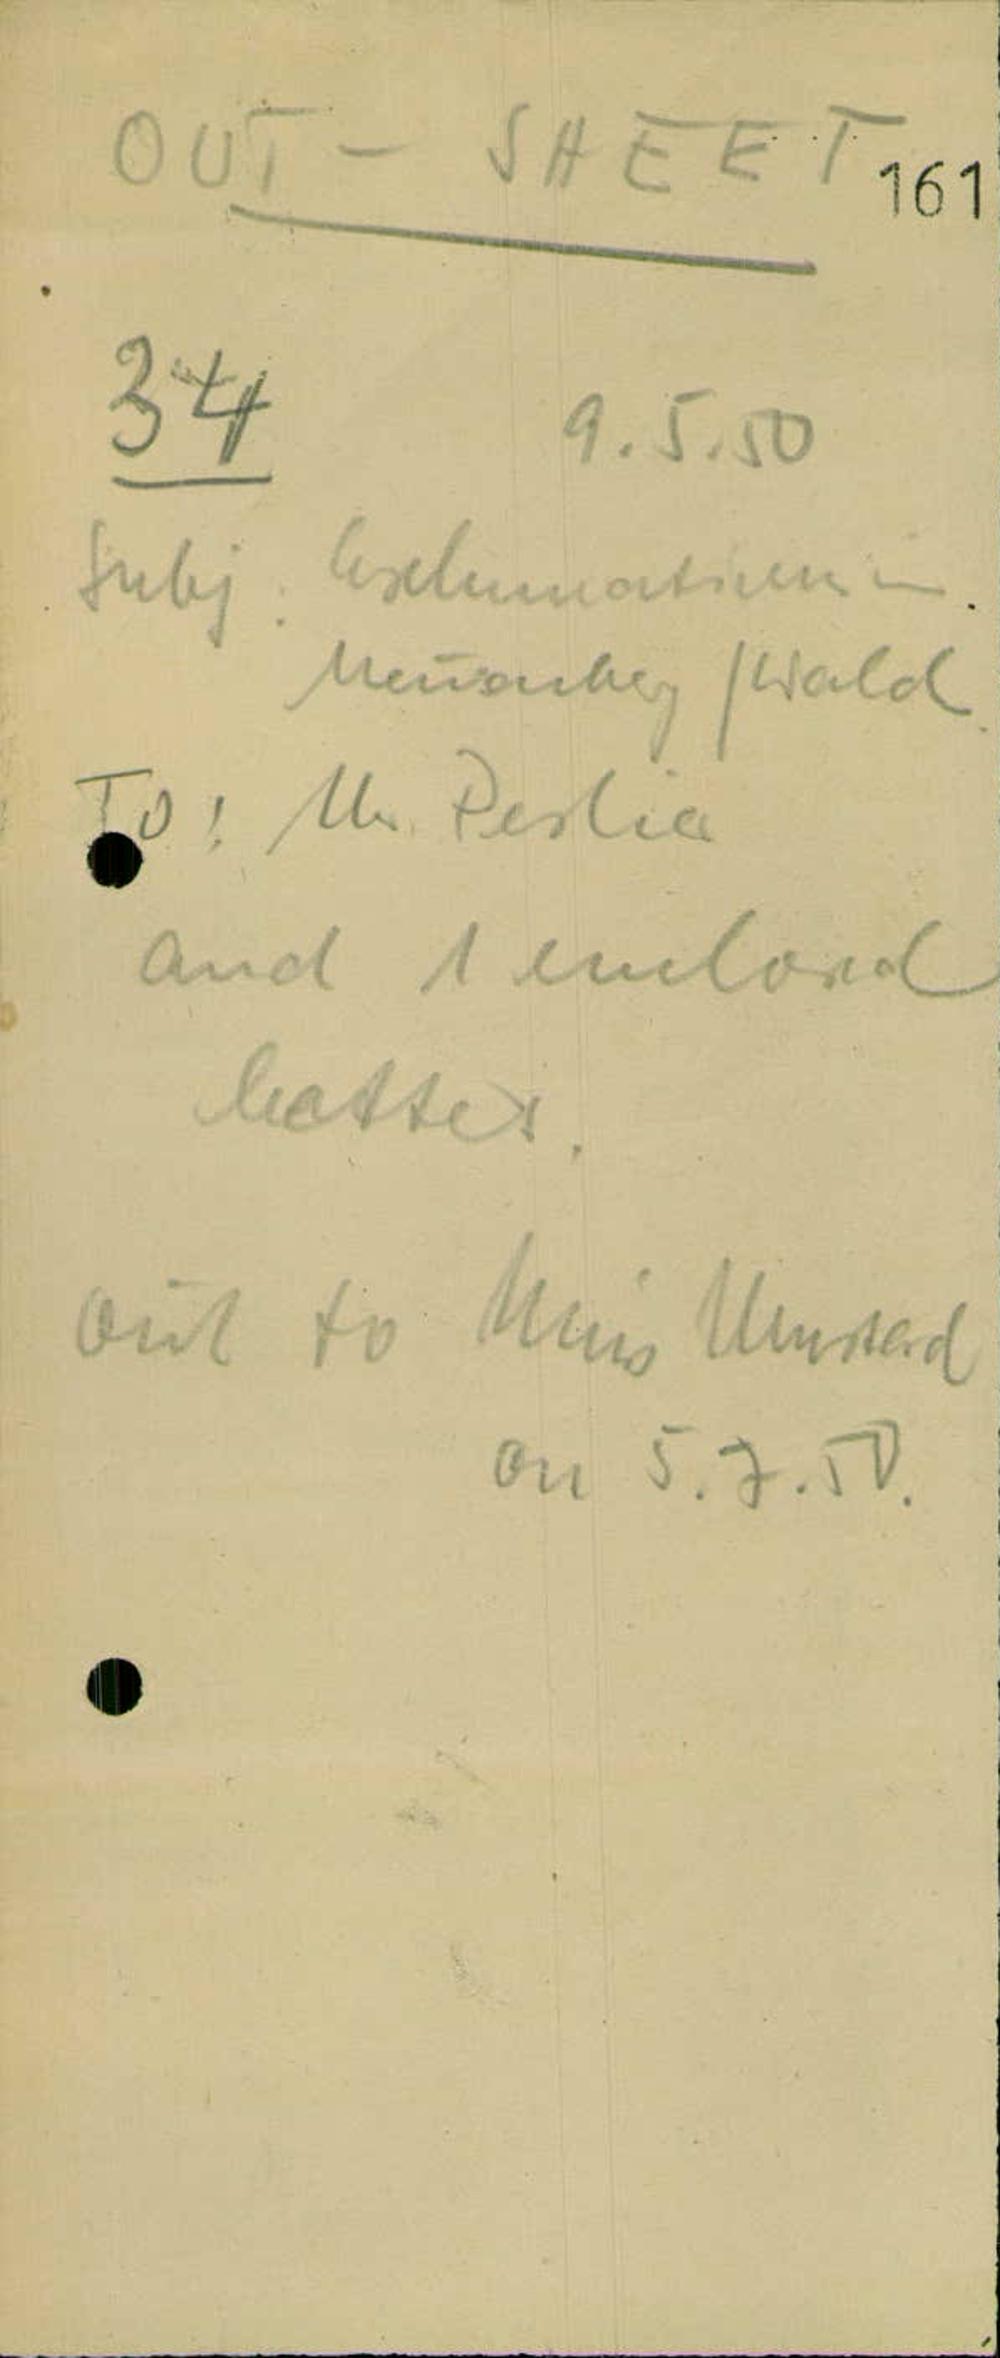 OUT - SHEET
161
34 9.5.50
Subj: Exhumations in
Neunburg /Wald.
To: Mr. Pestia
and 1 enclosed
letter.
out to Miss
on 5.7.50.